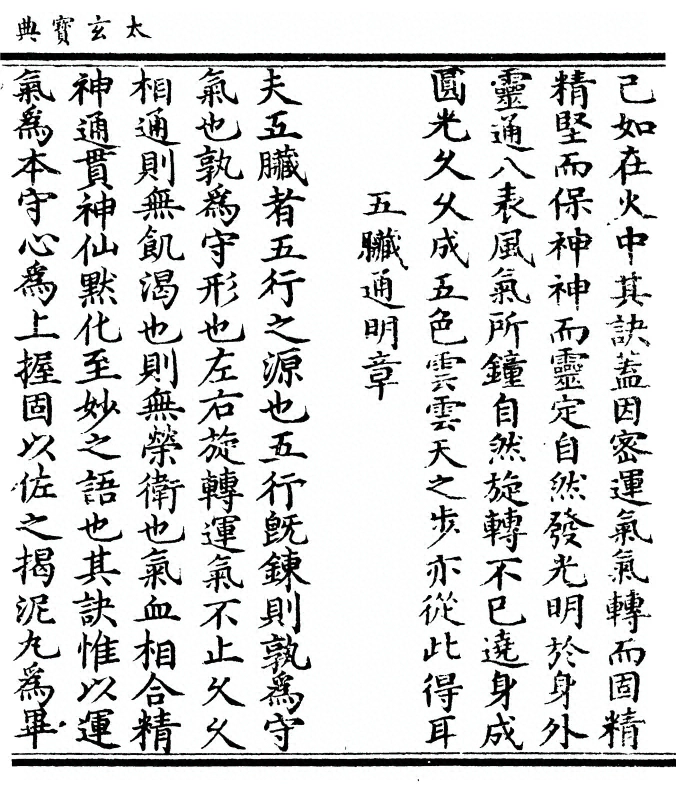 太玄寶典
己如在火中其訣蓋因密運氣氣轉而固精
精堅而保神神而靈定自然發光明於身外
靈通八表風氣所鐘自然旋轉不已遶身成
圓光久久成五色雲雲天之步亦從此得耳
五臟通明章
夫五臟者五行之源也五行旣鍊則孰爲守
氣也孰爲守形也左右旋轉運氣不止久久
相通則無飢渴也則無榮衛也氣血相合精
神通貫神仙默化至妙之語也其訣惟以運
氣爲本守心爲上握固以佐之揭泥丸爲畢